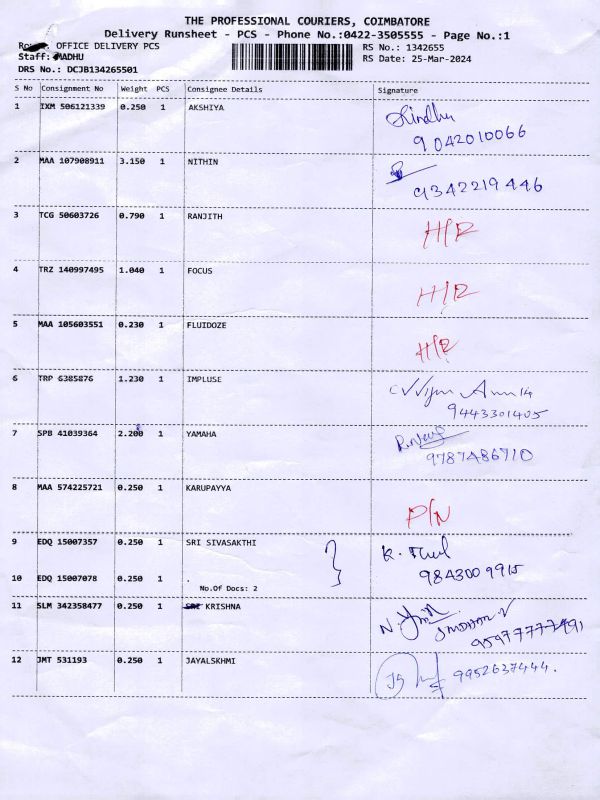 THE PROFESSIONAL COURIERS, COIMBATORE
Delivery Runsheet - PCS - Phone No.:0422-3505555 - Page No.:1
OFFICE DELIVERY PCS
RS No.: 1342655
Staff: MADHU
RS Date: 25-Mar-2024
DRS No.: DCJB134265501
S No Consignment No Weight PCS Consignee Details Signature
1 IXM 506121339 0.250 1 AKSHIYA
9042010066
2 MAA 107908911 3.150 1 NITHIN
9342219446
3 TCG 50603726 0.790 1 RANJITH H/R
4 TRZ 140997495 1.040 1 FOCUS H/R
5 MAA 105603551 0.230 1 FLUIDOZE H/R
6 TRP 6385876 1.230 1 IMPLUSE
9443301405
7 SPB 41039364 2.200 1 YAMAHA
9787486710
8 MAA 574225721 0.250 1 KARUPAYYA P/N
9 EDQ 15007357 0.250 1 SRI SIVASAKTHI
9843009915
10 EDQ 15007078 0.250 1 .
No.Of Docs: 2
11 SLM 342358477 0.250 1 SRI KRISHNA
12 JMT 531193 0.250 1 JAYALSKHMI 9952637444.